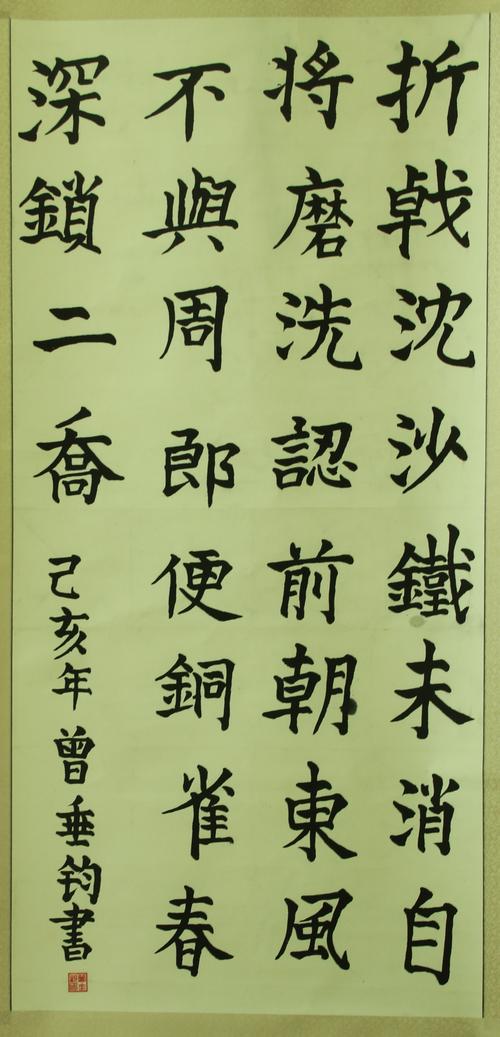 折戟沈沙鐵未消自
將磨洗認前朝東風
不與周郎便銅雀春
深鎖二喬
己亥年曾垂鈞書